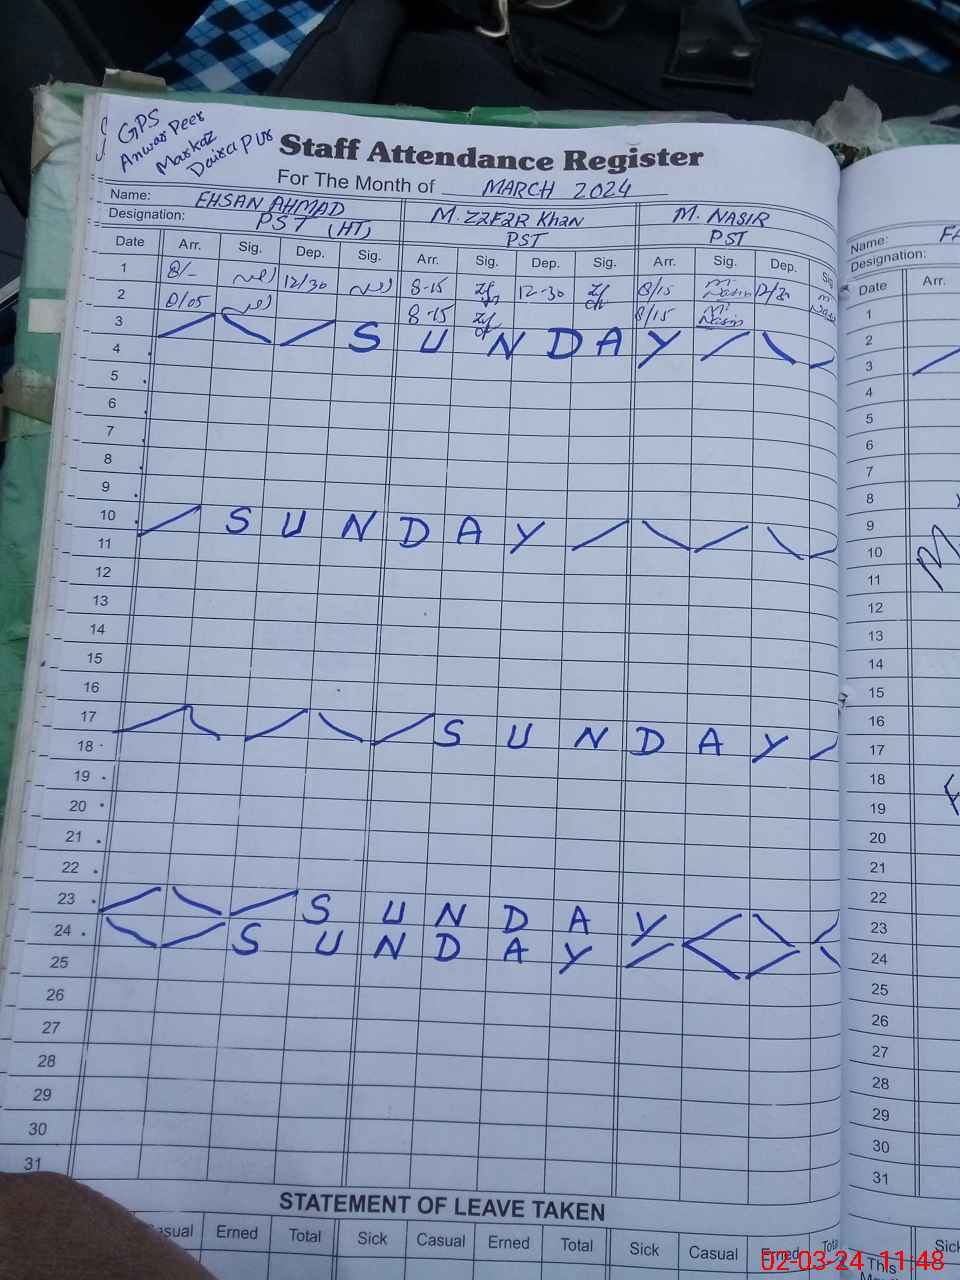 GPS
Anwar Peer
Markaz
Daira Pur
Staff Attendance Register
For The Month of MARCH 2024
Name: EHSAN AHMAD M. Zafar Khan M. NASIR
Designation: PST (HT) PST PST
Date Arr. Sig. Dep. Sig. Arr. Sig. Dep. Sig. Arr. Sig. Dep. Sig
1 8/- 12/30 8-15 12-30 8/15 M. Nasir 12/30 M Nasir
2 8/05 8-15 8/15 M. Nasir
3 SUNDAY
4
5
6
7
8
9
10 SUNDAY
11
12
13
14
15
16
17 SUNDAY
18
19
20
21
22
23 SUNDAY
24 SUNDAY
25
26
27
28
29
30
31
STATEMENT OF LEAVE TAKEN
Casual Erned Total Sick Casual Erned Total Sick Casual Erned Total
Name: FA
Designation:
Date Arr.
1
2
3
4
5
6
7
8
9
10
11
12
13
14
15
16
17
18
19
20
21
22
23
24
25
26
27
28
29
30
31
Sick
This
02-03-24 11:48